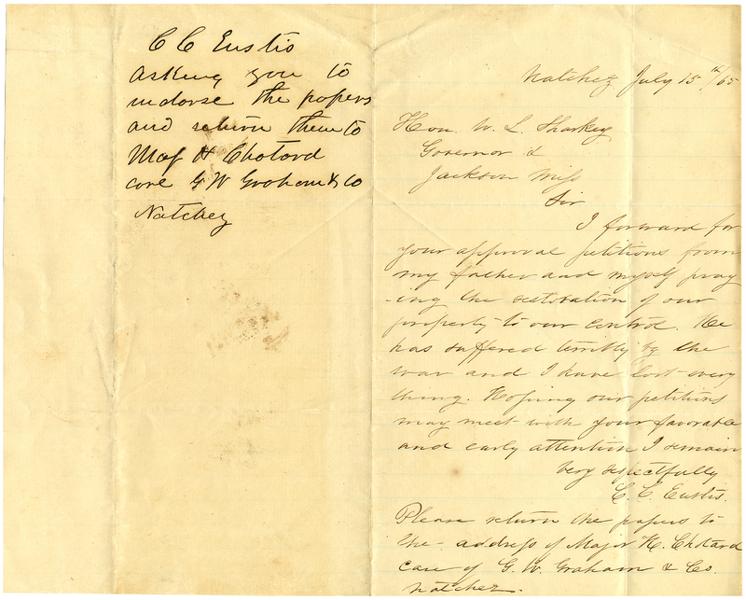 C C Eustis
asking you to
indorse the papers
and return them to
Maj H Chotard
care G W Graham & Co
Natchez
Natchez July 15th /65
Hon. W. L. Sharkey
Governor &
Jackson Miss
Sir
I forward for
your approval petitions from
my father and myself pray
-ing the restoration of our
property to our control. He
has suffered terribly by the
war and I have lost every
thing. Hoping our petitions
may meet with your favorable
and early attention I remain
Very respectfully
C. C. Eustis.
Please return the papers to
the address of Major H. Chotard
care of G. W. Graham & Co.
Natchez.